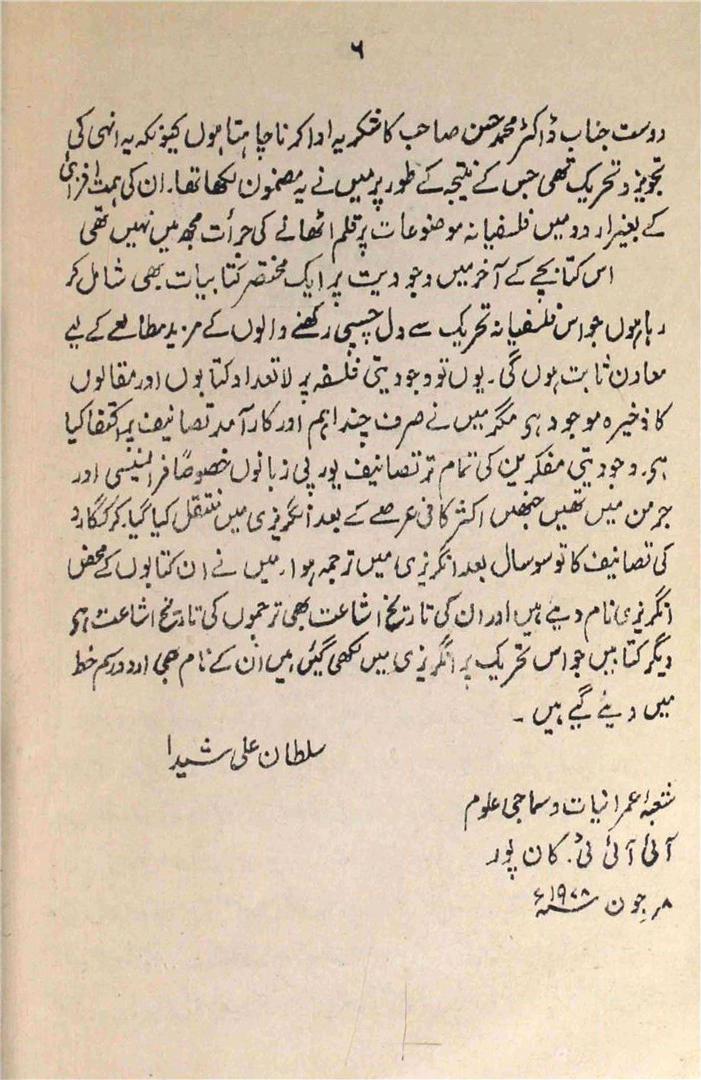 ۶
دوست جناب ڈاکٹر محمد حسن صاحب کا شکریہ ادا کرنا چاہتا ہوں کیونکہ یہ انہی کی
تجویز و تحریک تھی جس کے نتیجہ کے طور پر میں نے یہ مضمون لکھا تھا۔ ان کی ہمت افزائی
کے بغیر اردو میں فلسفیانہ موضوعات پر قلم اٹھانے کی جرأت مجھ میں نہیں تھی
اس کتابچے کے آخر میں وجودیت پر ایک مختصر کتابیات بھی شامل کر
رہا ہوں جو اس فلسفیانہ تحریک سے دل چسپی رکھنے والوں کے مزید مطالعے کے لیے
معاون ثابت ہوں گی۔ یوں تو وجودیتی فلسفہ پر لاتعداد کتابوں اور مقالوں
کا ذخیرہ موجود ہی مگر میں نے صرف چند اہم اور کارآمد تصانیف پر اکتفا کیا
ہی۔ وجودیتی مفکرین کی تمام تر تصانیف یورپی زبانوں خصوصاً فرانسیسی اور
جرمن میں تھیں جنھیں اکثر کافی عرصے کے بعد انگریزی میں منتقل کیا گیا۔ کرکگارد
کی تصانیف کا تو سو سال بعد انگریزی میں ترجمہ ہوا۔ میں نے ان کتابوں کے محض
انگریزی نام دیئے ہیں اور ان کی تاریخ اشاعت بھی ترجموں کی تاریخ اشاعت ہی
دیگر کتابیں جو اس تحریک پر انگریزی میں لکھی گئیں ہیں ان کے نام بھی اردو رسم خط
میں دیئے گیے ہیں۔
سلطان علی شیدا
شعبۂ عمرانیات و سماجی علوم
آئی آئی ٹی۔ کان پور
۸؍ جون ۱۹۷۸ء